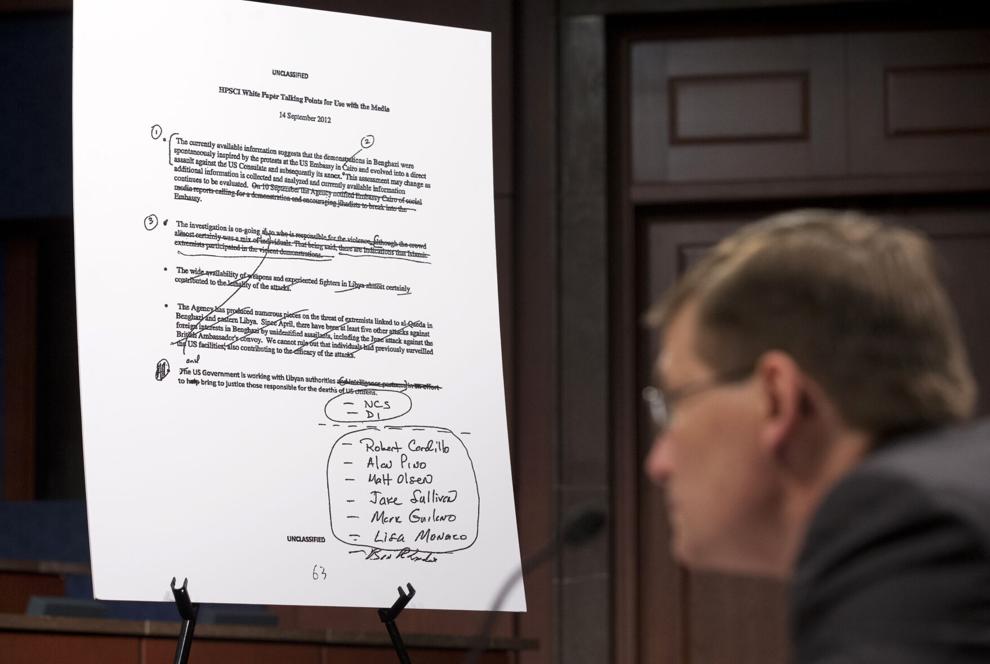 UNCLASSIFIED
HPSCI White Paper Talking Points for Use with the Media
14 September 2012
1
2
The currently available information suggests that the demonstrations in Benghazi were
spontaneously inspired by the protests at the US Embassy in Cairo and evolved into a direct
assault against the US Consulate and subsequently its annex. This assessment may change as
additional information is collected and analyzed and currently available information
continues to be evaluated. On 10 September the Agency notified Embassy Cairo of social
media reports calling for a demonstration and encouraging jihadists to break into the
Embassy.
3
The investigation is on-going as to who is responsible for the violence, although the crowd
almost certainly was a mix of individuals. That being said, there are indications that Islamic
extremists participated in the violent demonstrations.
The wide availability of weapons and experienced fighters in Libya almost certainly
contributed to the lethality of the attacks.
The Agency has produced numerous pieces on the threat of extremists linked to al-Qaeda in
Benghazi and eastern Libya. Since April, there have been at least five other attacks against
foreign interests in Benghazi by unidentified assailants, including the June attack against the
British Ambassador's convoy. We cannot rule out that individuals had previously surveilled
the US facilities, also contributing to the efficacy of the attacks.
and
The US Government is working with Libyan authorities and intelligence partners in an effort
to help bring to justice those responsible for the deaths of US citizens.
– NCS
– DI
– Robert Cardillo
– Alan Pino
– Matt Olsen
– Jake Sullivan
– Mark Guiliano
– Lisa Monaco
– Ben Rhodes
UNCLASSIFIED
63